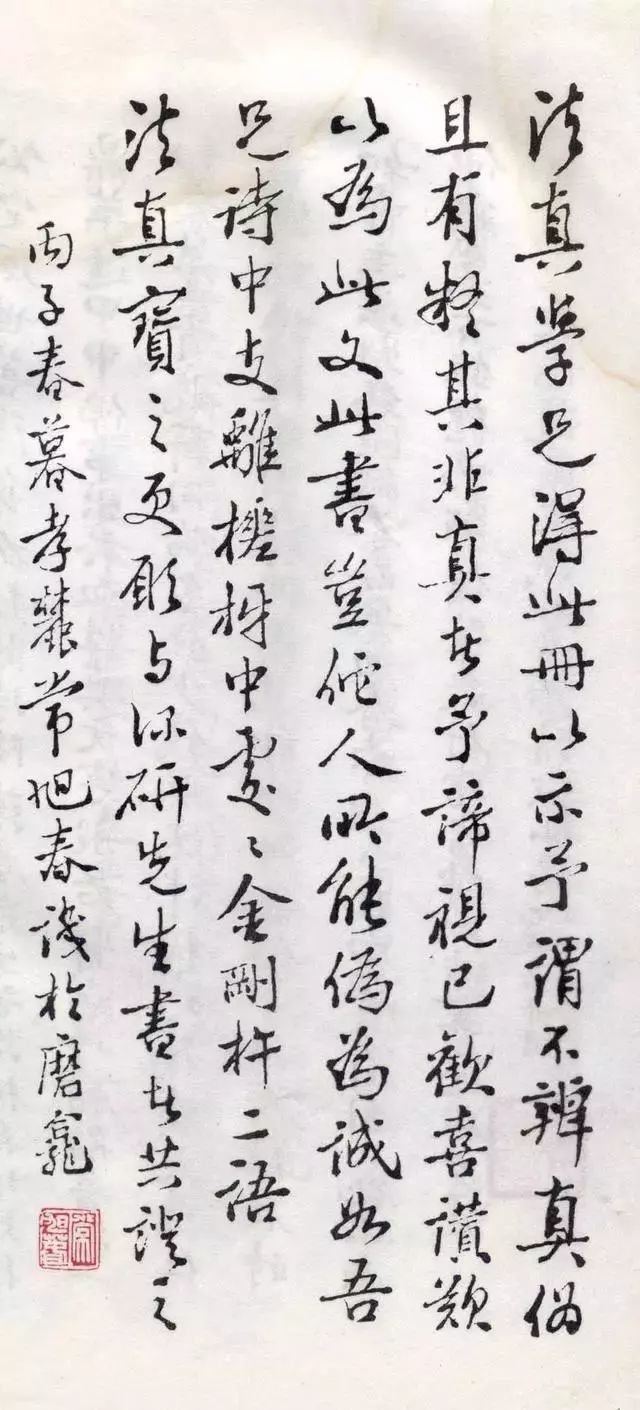 法真學兄得此冊以示予謂不辨真偽
且有疑其非真者予諦視已歡喜讚歎
以為此文此書豈他人所能偽為誠如吾
兄詩中支離槎枒中處々金剛杵二語
法真寶之更願与深研先生書者共證之
丙子春暮孝㯟常旭春識於磨龕
常旭春